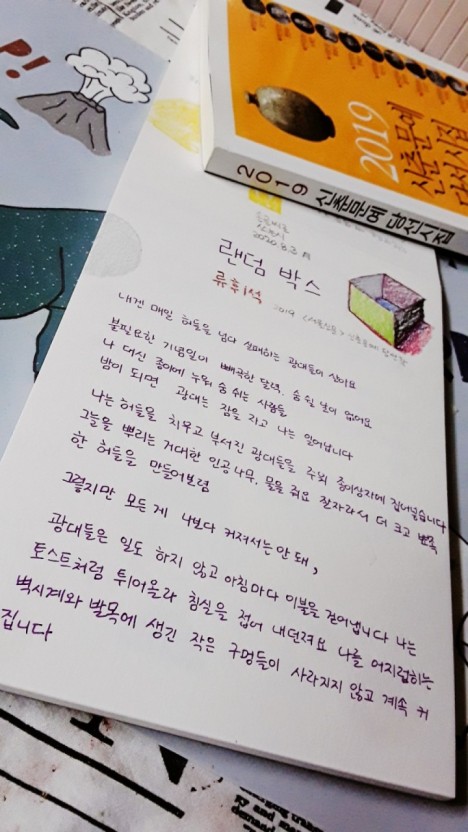 P!
2019
신춘문예
당선시집
2019 신춘문예 당선시집
2020.8.3 月
랜덤 박스
류휘석
2019 <서울신문> 신춘문예 당선작
내겐 매일 허들을 넘다 실패하는 광대들이 살아요
불필요한 기념일이 빼곡한 달력, 숨 쉴 날이 없어요
나 대신 종이에 누워 숨 쉬는 사람들
밤이 되면 광대는 잠을 자고 나는 일어납니다
나는 허들을 치우고 부서진 광대들을 주워 종이상자에 집어넣습니다
그늘을 뿌리는 거대한 인공나무, 물을 줘요 잘 자라서 더 크고 뾰족
한 허들을 만들어보렴
그렇지만 모든 게 나보다 커져서는 안 돼,
광대들은 일도 하지 않고 아침마다 이불을 걷어냅니다 나는
토스트처럼 튀어올라 침실을 접어 내던져요 나를 어지럽히는
벽시계와 발목에 생긴 작은 구멍들이 사라지지 않고 계속 커
집니다